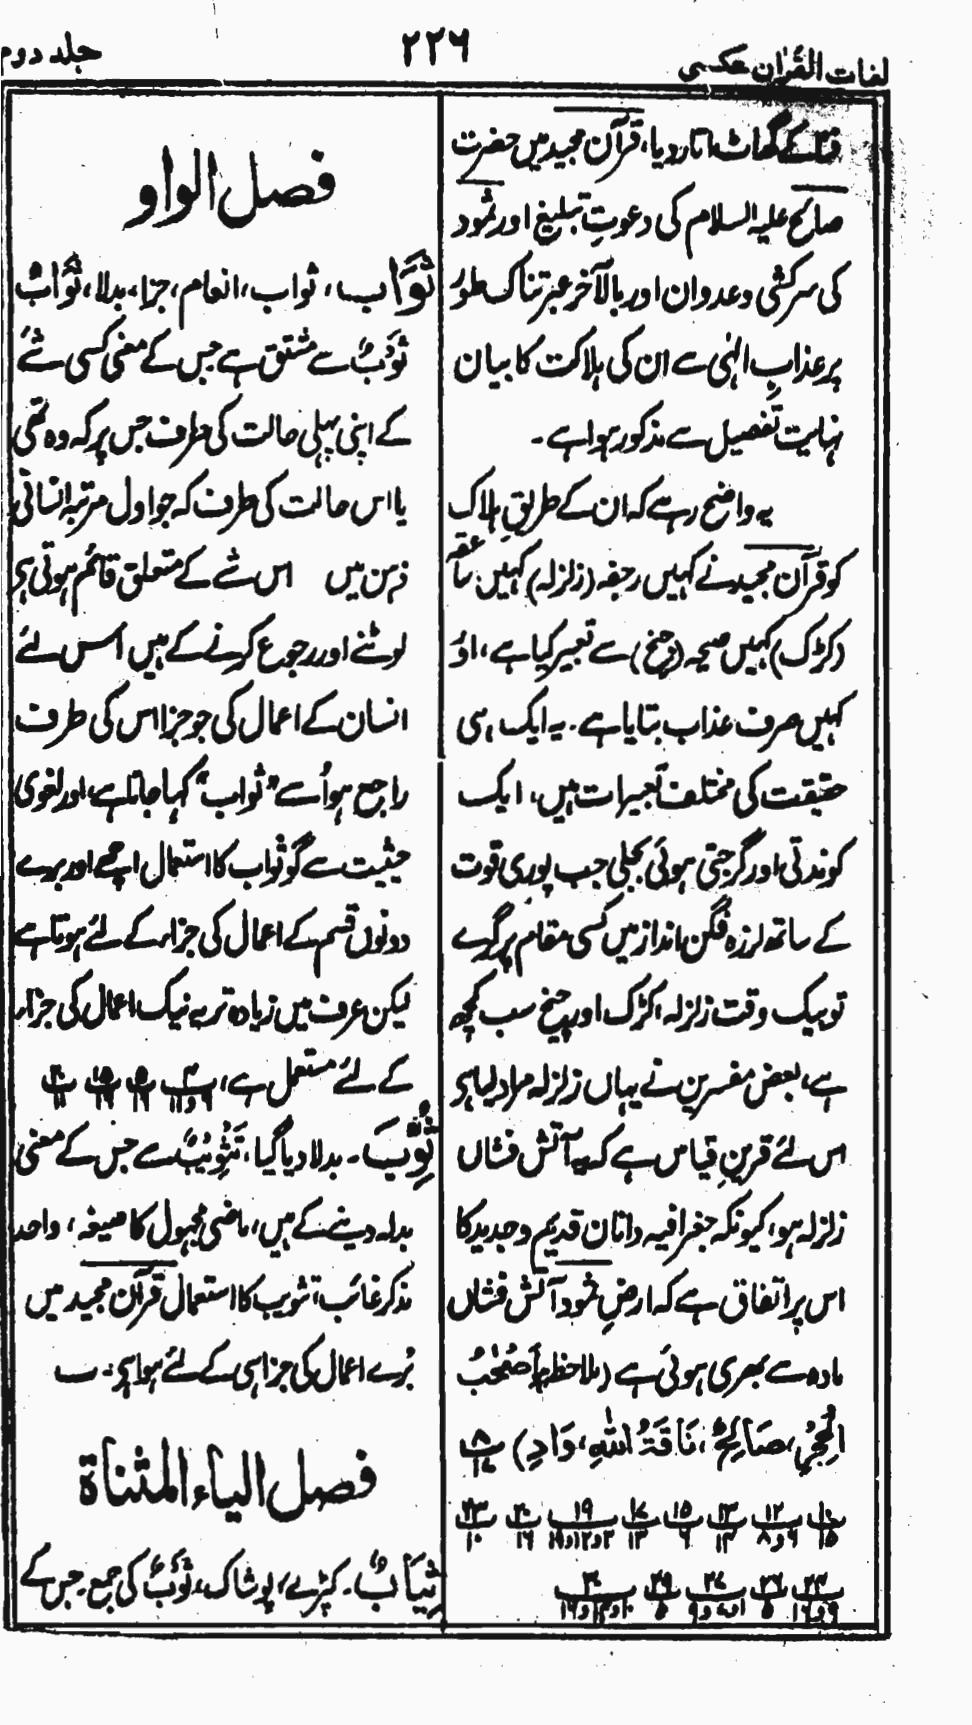 لغات القرآن عکسی
۲۲۶
جلد دوم
کے گھاٹ اتار دیا، قرآن مجید میں حضرت
صالح علیہ السلام کی دعوتِ تبلیغ اور ثمود
کی سرکشی و عدوان اور بالآخر عبرتناک طور
پر عذابِ الٰہی سے ان کی ہلاکت کا بیان
نہایت تفصیل سے مذکور ہوا ہے ۔
یہ واضح رہے کہ ان کے طریقِ ہلاک
کو قرآن مجید نے کہیں رجفہ (زلزلہ) کہیں صاعقہ
(کڑک) کہیں صیحہ (چیخ) سے تعبیر کیا ہے، اور
کہیں صرف عذاب بتایا ہے ۔ یہ ایک ہی
حقیقت کی مختلف تعبیرات ہیں، ایک
کوندتی اور گرجتی ہوئی بجلی جب پوری قوت
کے ساتھ لرزہ فگن انداز میں کسی مقام پر گرے
تو بیک وقت زلزلہ، کڑک اور چیخ سب کچھ
ہے، بعض مفسرین نے یہاں زلزلہ مراد لیا ہی
اس لئے قرینِ قیاس ہے کہ یہ آتش فشاں
زلزلہ ہو، کیونکہ جغرافیہ دانان قدیم و جدید کا
اس پر اتفاق ہے کہ ارضِ ثمود آتش فشاں
مادہ سے بھری ہوئی ہے (ملاحظہ ہو اَصْحٰبُ
الْحِجْرِ، صَالِحٌ، نَاقَۃُ اللہِ، وَادٍ)
فصل الواو
ثَوَابٌ، ثواب، انعام، جزا، بدلا، ثَوَابٌ
ثَوْبٌ سے مشتق ہے جس کے معنی کسی شۓ
کے اپنی پہلی حالت کی طرف جس پر کہ وہ تھی
یا اس حالت کی طرف کہ جو اول مرتبہ انسانی
ذہن میں اس شے کے متعلق قائم ہوتی ہی
لوٹنے اور رجوع کرنے کے ہیں اس لئے
انسان کے اعمال کی جو جزا اس کی طرف
راجع ہو اُسے "ثواب" کہا جاتا ہے، اور لغوی
حیثیت سے گو ثواب کا استعمال اچھے اور برے
دونوں قسم کے اعمال کی جزاء کے لئے ہوتا ہے
لیکن عرف میں زیادہ تر یہ نیک اعمال کی جزاء
کے لئے مستعمل ہے،
ثُوِّبَ ۔ بدلا دیا گیا، تَثْوِیْبٌ سے جس کے معنی
بدلہ دینے کے ہیں، ماضی مجہول کا صیغہ، واحد
مذکر غائب، تثویب کا استعمال قرآن مجید میں
بُرے اعمال کی جزا ہی کے لئے ہوا ہی ۔
فصل الیاء المثناۃ
ثِیَابٌ ۔ کپڑے، پوشاک، ثَوْبٌ کی جمع جس کے